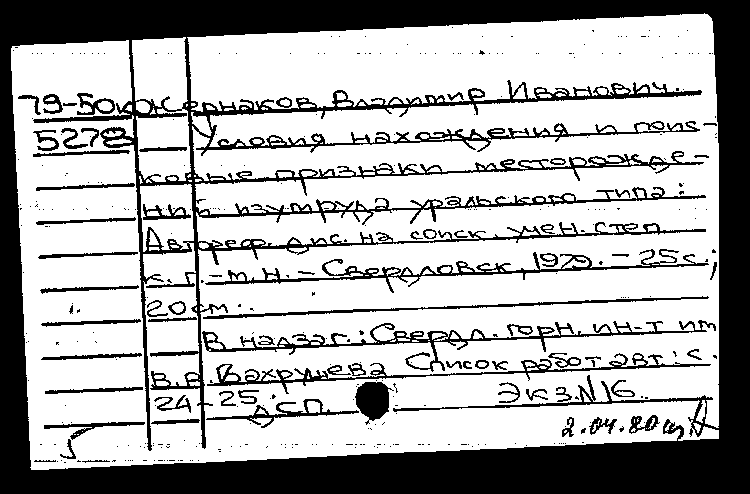 79-50к Жернаков, Владимир Иванович.
5278 Условия нахождения и поис-
ковые признаки месторожде-
ний изумруда уральского типа:
Автореф. дис. на соиск. учен. степ.
к. г.-м. н. - Свердловск, 1979. - 25 с.;
20 см.
В надзаг.: Свердл. горн. ин-т им
В.В. Вахрушева Список работ авт.: с.
24-25.
ДСП. Экз. N 16.
2.04.80